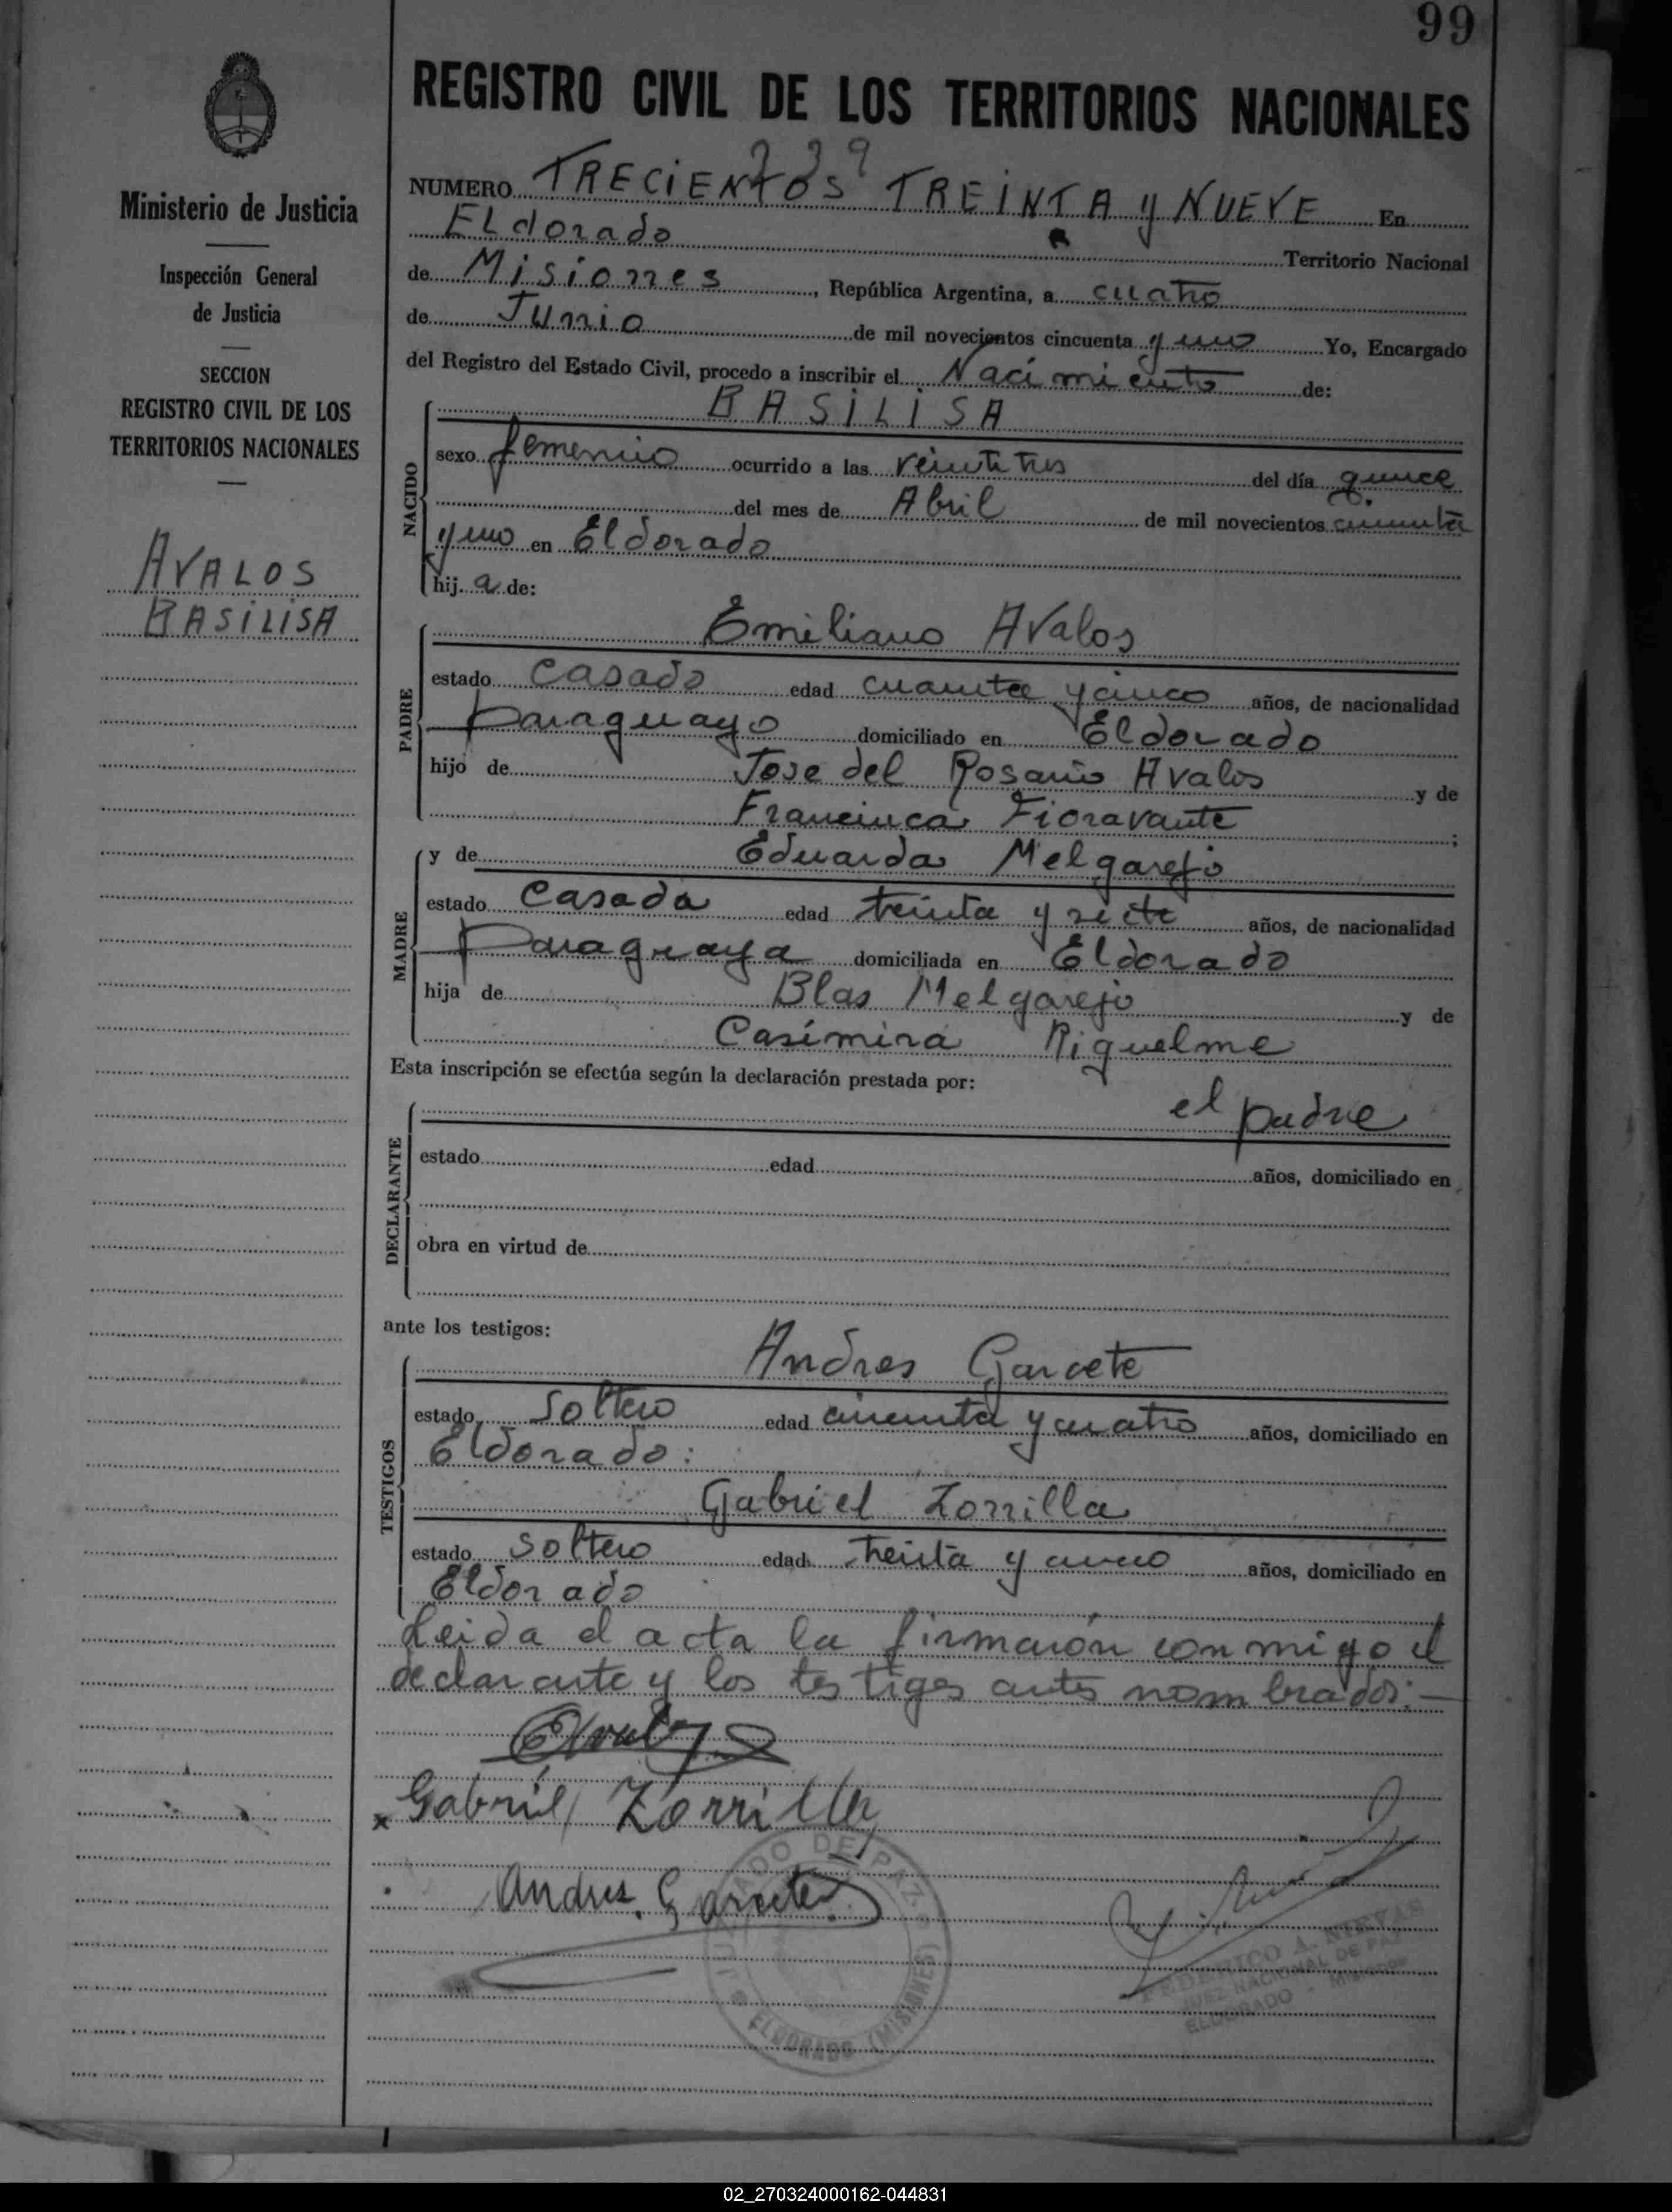 99
REGISTRO CIVIL DE LOS TERRITORIOS NACIONALES
Ministerio de Justicia
Inspección General
de Justicia
SECCION
REGISTRO CIVIL DE LOS
TERRITORIOS NACIONALES
AVALOS
BASILISA
339
NUMERO TRECIENTOS TREINTA y NUEVE En
ELdorado Territorio Nacional
de Misiones, República Argentina, a cuatro
de Junio de mil novecientos cincuenta y uno Yo, Encargado
del Registro del Estado Civil, procedo a inscribir el Nacimiento de:
NACIDO
BASILISA
sexo femenino ocurrido a las veintitres del día quince
del mes de Abril de mil novecientos cincuenta
y uno en Eldorado
hija de:
PADRE
Emiliano Avalos
estado Casado edad cuarenta y cinco años, de nacionalidad
paraguayo domiciliado en Eldorado
hijo de Jose del Rosario Avalos y de
Fioravante;
MADRE
y de Eduarda Melgarejo
estado Casada edad treinta y siete años, de nacionalidad
Paraguaya domiciliada en Eldorado
hija de Blas Melgarejo y de
Casimira Riquelme
Esta inscripción se efectúa según la declaración prestada por:
DECLARANTE
el padre
estado edad años, domiciliado en
obra en virtud de
ante los testigos:
TESTIGOS
Andres Garcete
estado Soltero edad cincuenta y cuatro años, domiciliado en
Eldorado:
Gabriel Zorrilla
estado Soltero edad treinta y cinco años, domiciliado en
Eldorado
Leida el acta la firmarón conmigo el
declarante y los testigos antes nombrados:—
Gabriel Zorrilla
Andres Garcete
JUZGADO DE PAZ
ELDORADO (MISIONES)
FEDERICO A. NIEVAS
JUEZ NACIONAL DE PAZ
ELDORADO - Misiones
02_270324000162-044831